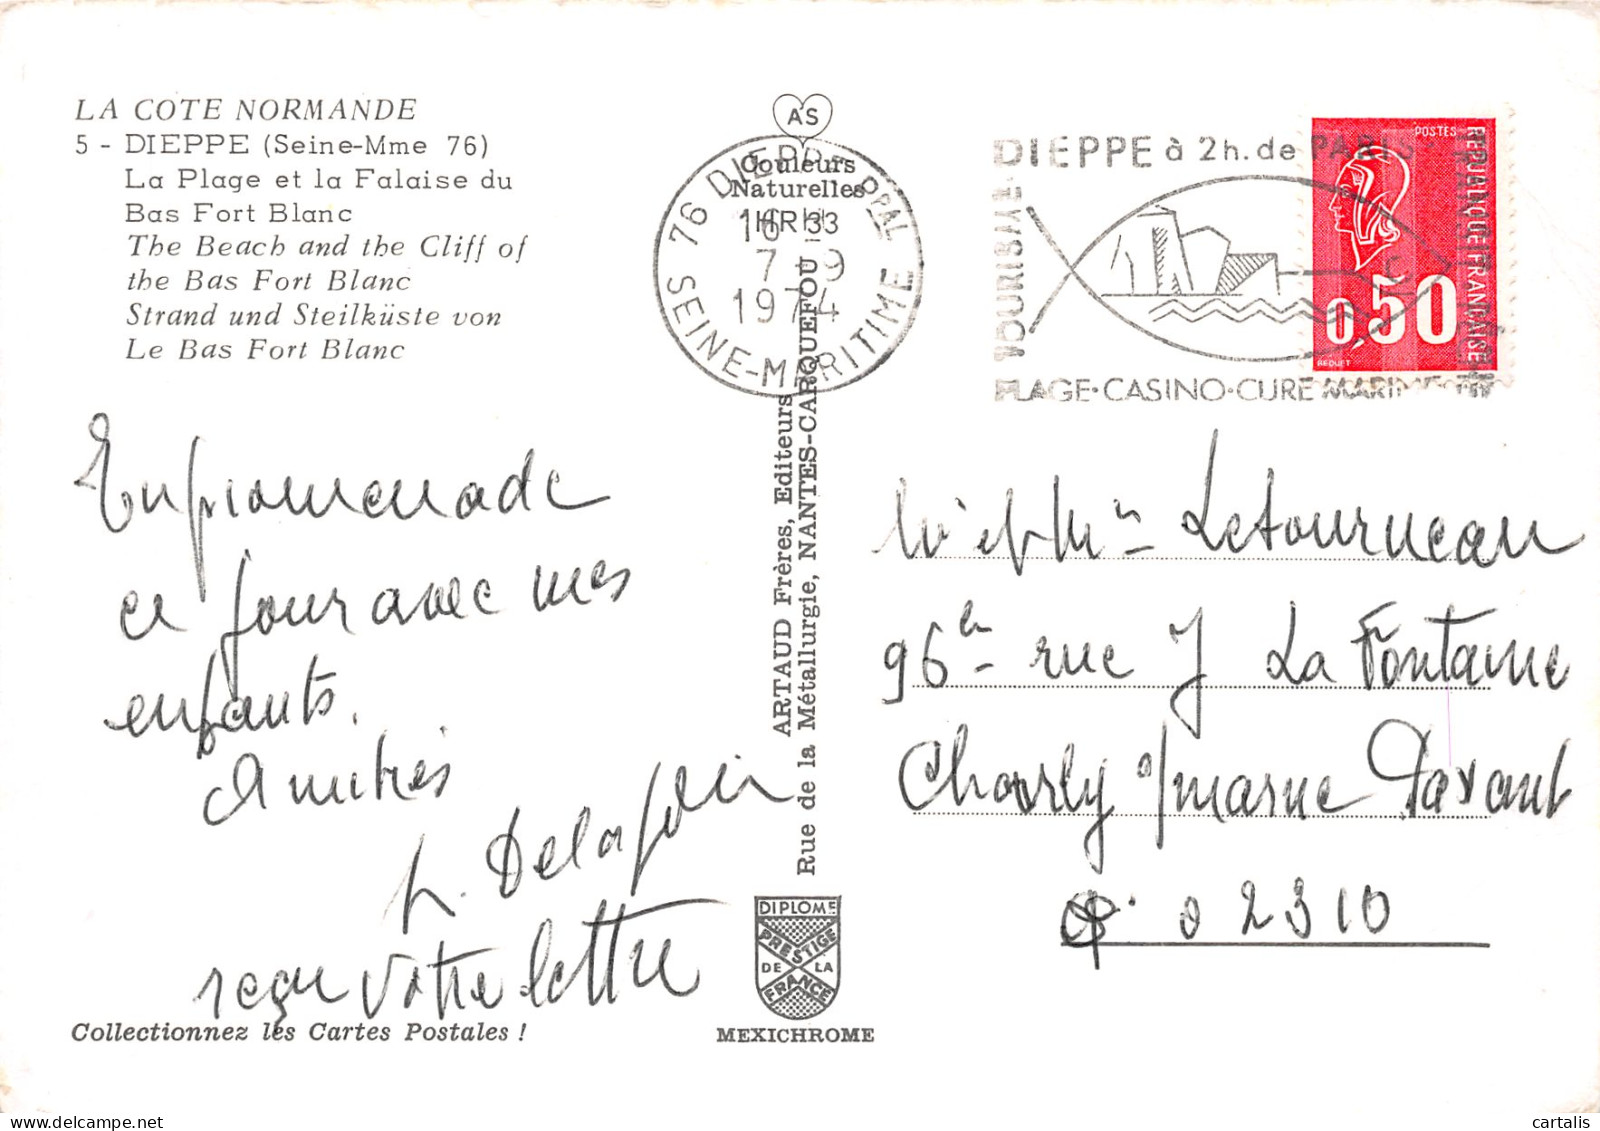 LA COTE NORMANDE
5 - DIEPPE (Seine-Mme 76)
La Plage et la Falaise du
Bas Fort Blanc
The Beach and the Cliff of
the Bas Fort Blanc
Strand und Steilküste von
Le Bas Fort Blanc
En promenade
ce jour avec mes
enfants.
Amitiés
Delafoix
reçu votre lettre
Collectionnez les Cartes Postales !
AS
Couleurs
Naturelles
76 DIEPPE PPAL
16 H 33
7 - 9
1974
SEINE-MARITIME
ARTAUD Frères, Editeurs
Rue de la Métallurgie, NANTES-CARQUEFOU
DIPLOME
PRESTIGE
DE LA
FRANCE
MEXICHROME
DIEPPE à 2h. de PARIS
PLAGE·CASINO·CURE MARINE
POSTES
REPUBLIQUE FRANÇAISE
0,50
BEQUET
Letourneau
96 rue J La Fontaine
Charly s/marne Pavant
02310
cartalis
www.delcampe.net